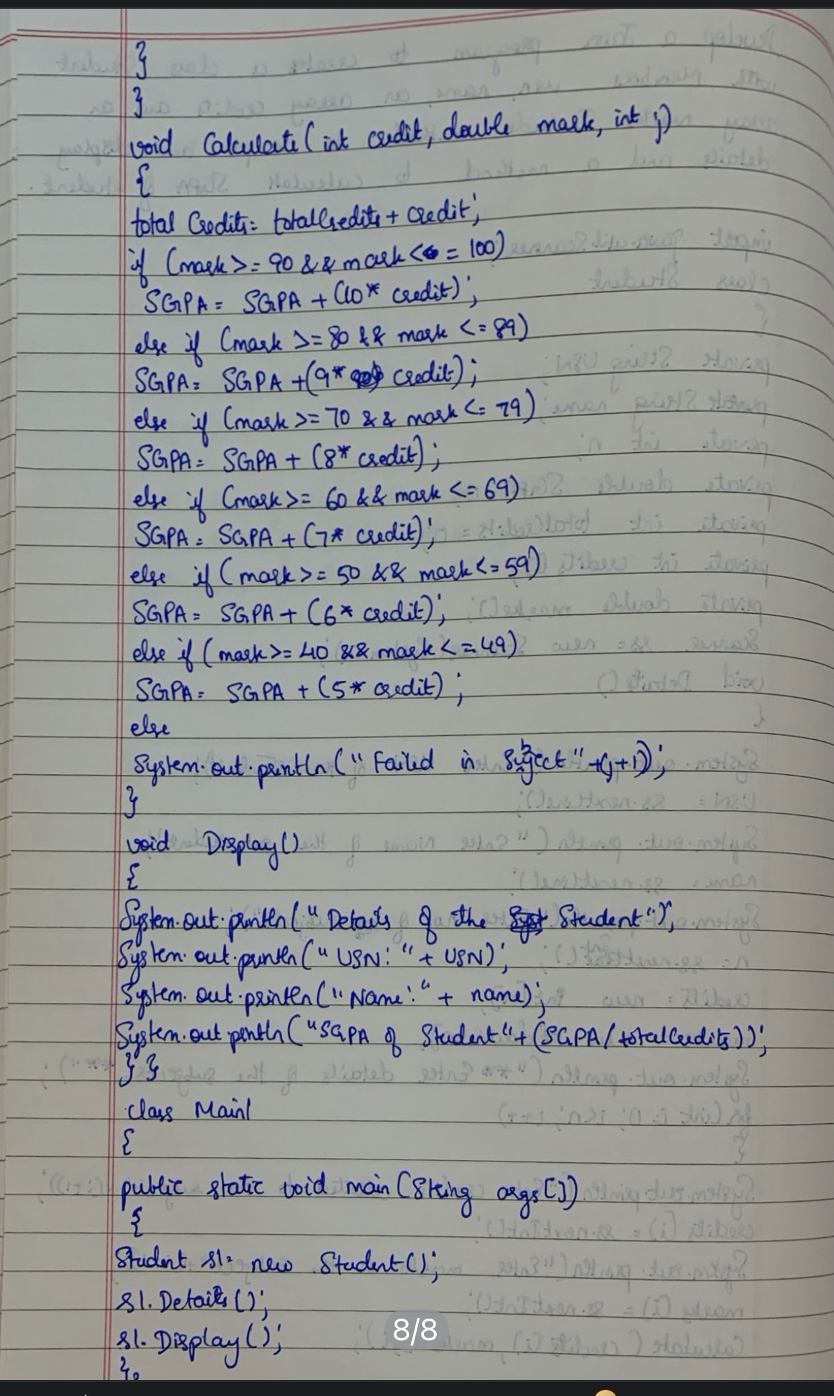 }
}
void Calculate(int credit, double mark, int j)
{
total Credits= totalCredits + Credit;
if (mark>=90 && mark<=100)
SGPA= SGPA+(10* credit);
else if (mark >=80 && mark <=89)
SGPA= SGPA +(9* credit);
else if (mark>=70 && mark<=79)
SGPA= SGPA + (8* credit);
else if (mark>= 60 && mark <=69)
SGPA= SGPA + (7* credit);
else if (mark>=50 && mark<=59)
SGPA= SGPA + (6* credit);
else if (mark>=40 && mark<=49)
SGPA= SGPA + (5* credit);
else
System.out.println("Failed in Subject"+(j+1));
}
void Display()
{
System.out.println("Details of the Student");
System.out.println("USN:"+USN);
System.out.println("Name:"+ name);
System.out.println("SGPA of Student"+(SGPA/totalCredits));
} }
class Main1
{
public static void main(String args[])
{
Student s1= new Student();
s1.Details();
s1.Display();
}
8/8